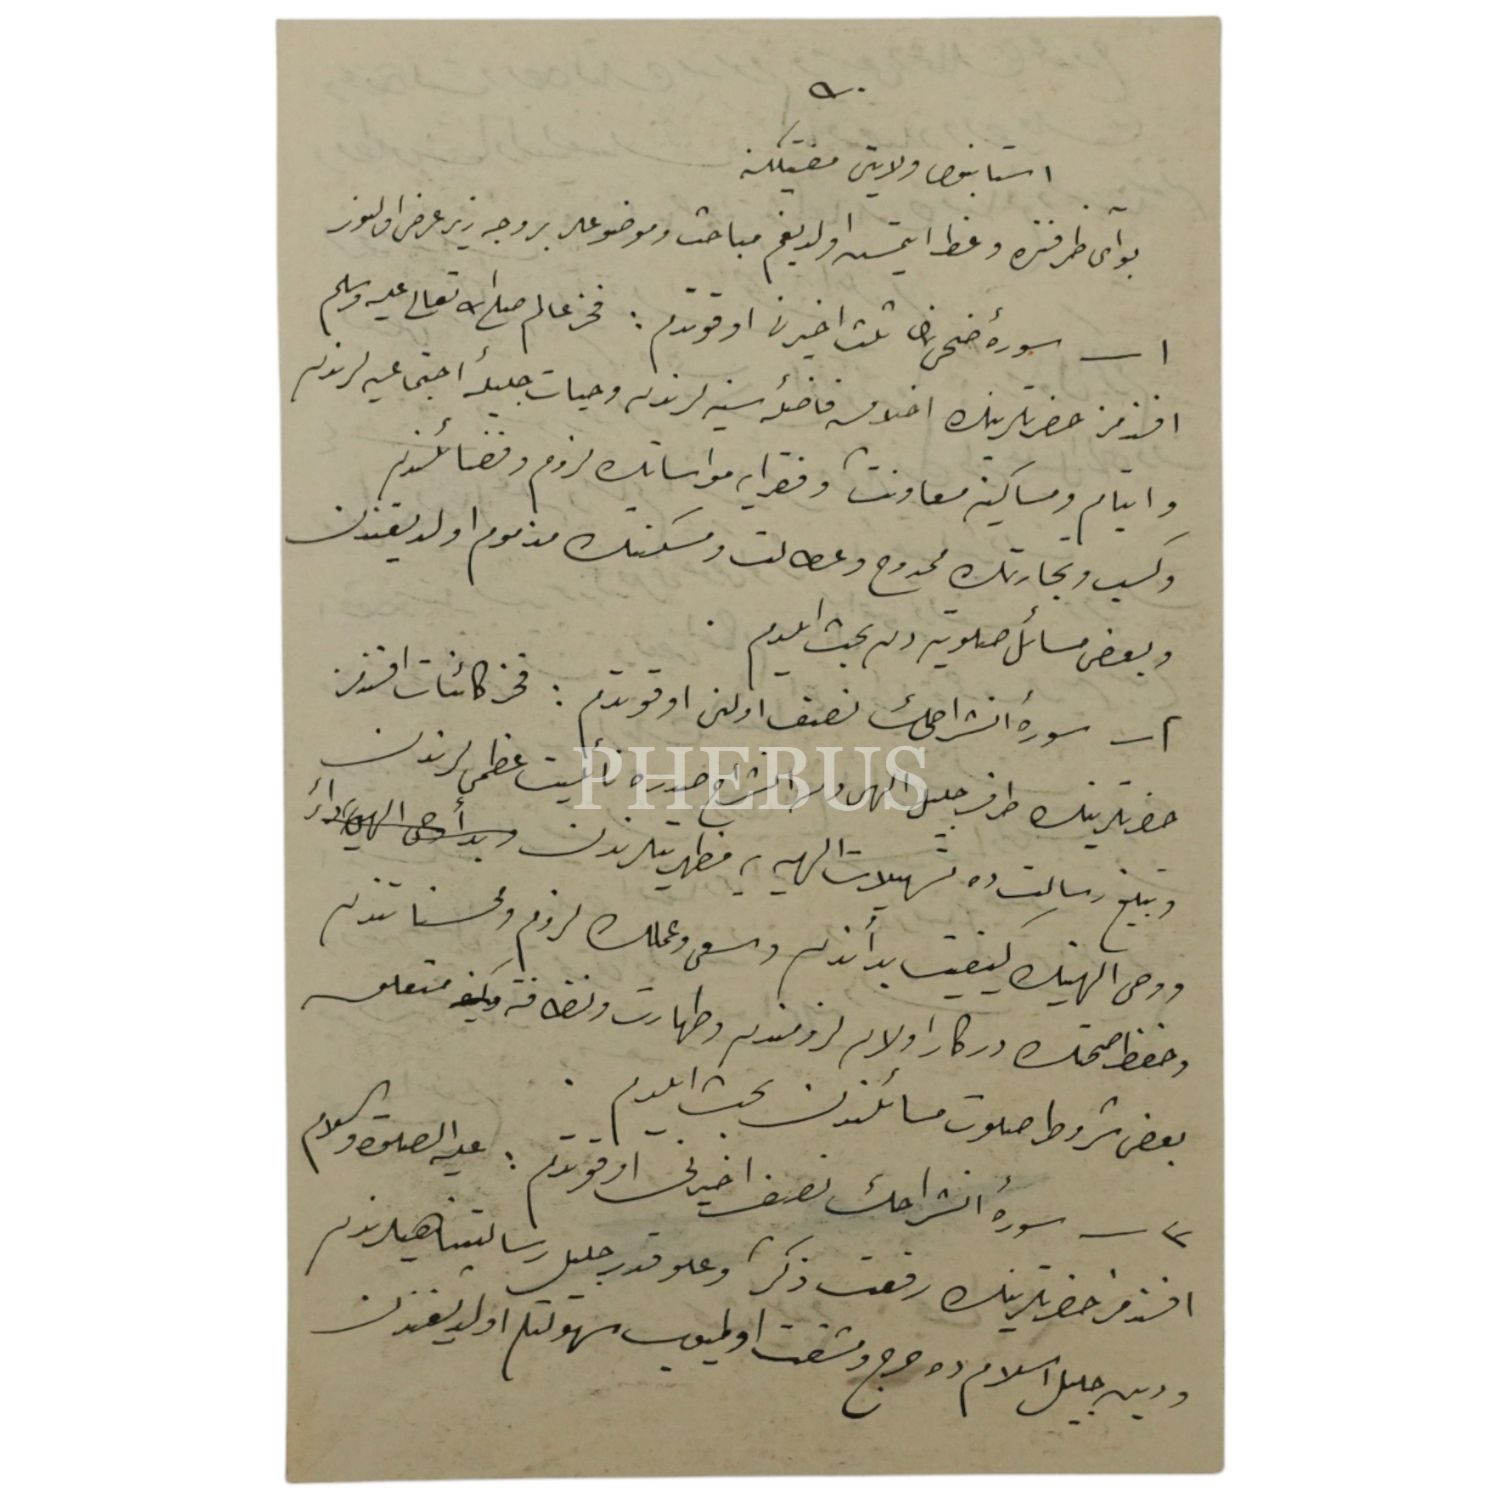 ٩٠
استانبول ولایتی مفتیلگنه
بو آی ظرفنده وعظ ایتمش اولدیغم مباحث و موضوعلر بر وجه زیر عرض اولنور
١ — سورهٔ ضحی نڭ ثلث اخیرنی اوقودم : فخر عالم صلی الله تعالی علیه وسلم
افندمز حضرتلرینڭ اخلاق فاضلهٔ سنیه لرندن و حیات جلیلهٔ اجتماعیه لرندن
و ایتام و مساکینه معاونت و فقرایه مواساتڭ لزوم و فضائلندن
و کسب و تجارتڭ ممدوح و عطالت و مسکنتڭ مذموم اولدیغندن
و بعض مسائل صلوتیه دن بحث ایلدم .
٢ — سورهٔ انشراحڭ نصف اولنی اوقودم : فخر کائنات افندمز
حضرتلرینڭ طرف جلیل الهی دن انشراح صدره نائلیت عظمی لرندن
PHEBUS
و تبلیغ رسالت ده تسهیلات الهیه یه مظهریتلرندن
و وحی الهینڭ کیفیت بدأندن و سعی و عملڭ لزوم و محسناتندن
و حفظ صحتڭ درکار اولان لزومندن و طهارت و نظافته متعلق
بعض شروط صلوت مسائلندن بحث ایلدم .
٣ — سورهٔ انشراحڭ نصف اخیرنی اوقودم : علیه الصلوة والسلام
افندمز حضرتلرینڭ رفعت ذکر و علو قدر جلیل رسالتپناهیلرندن
و دین جلیل اسلام ده حرج و مشقت اولمیوب سهولتلی اولدیغندن